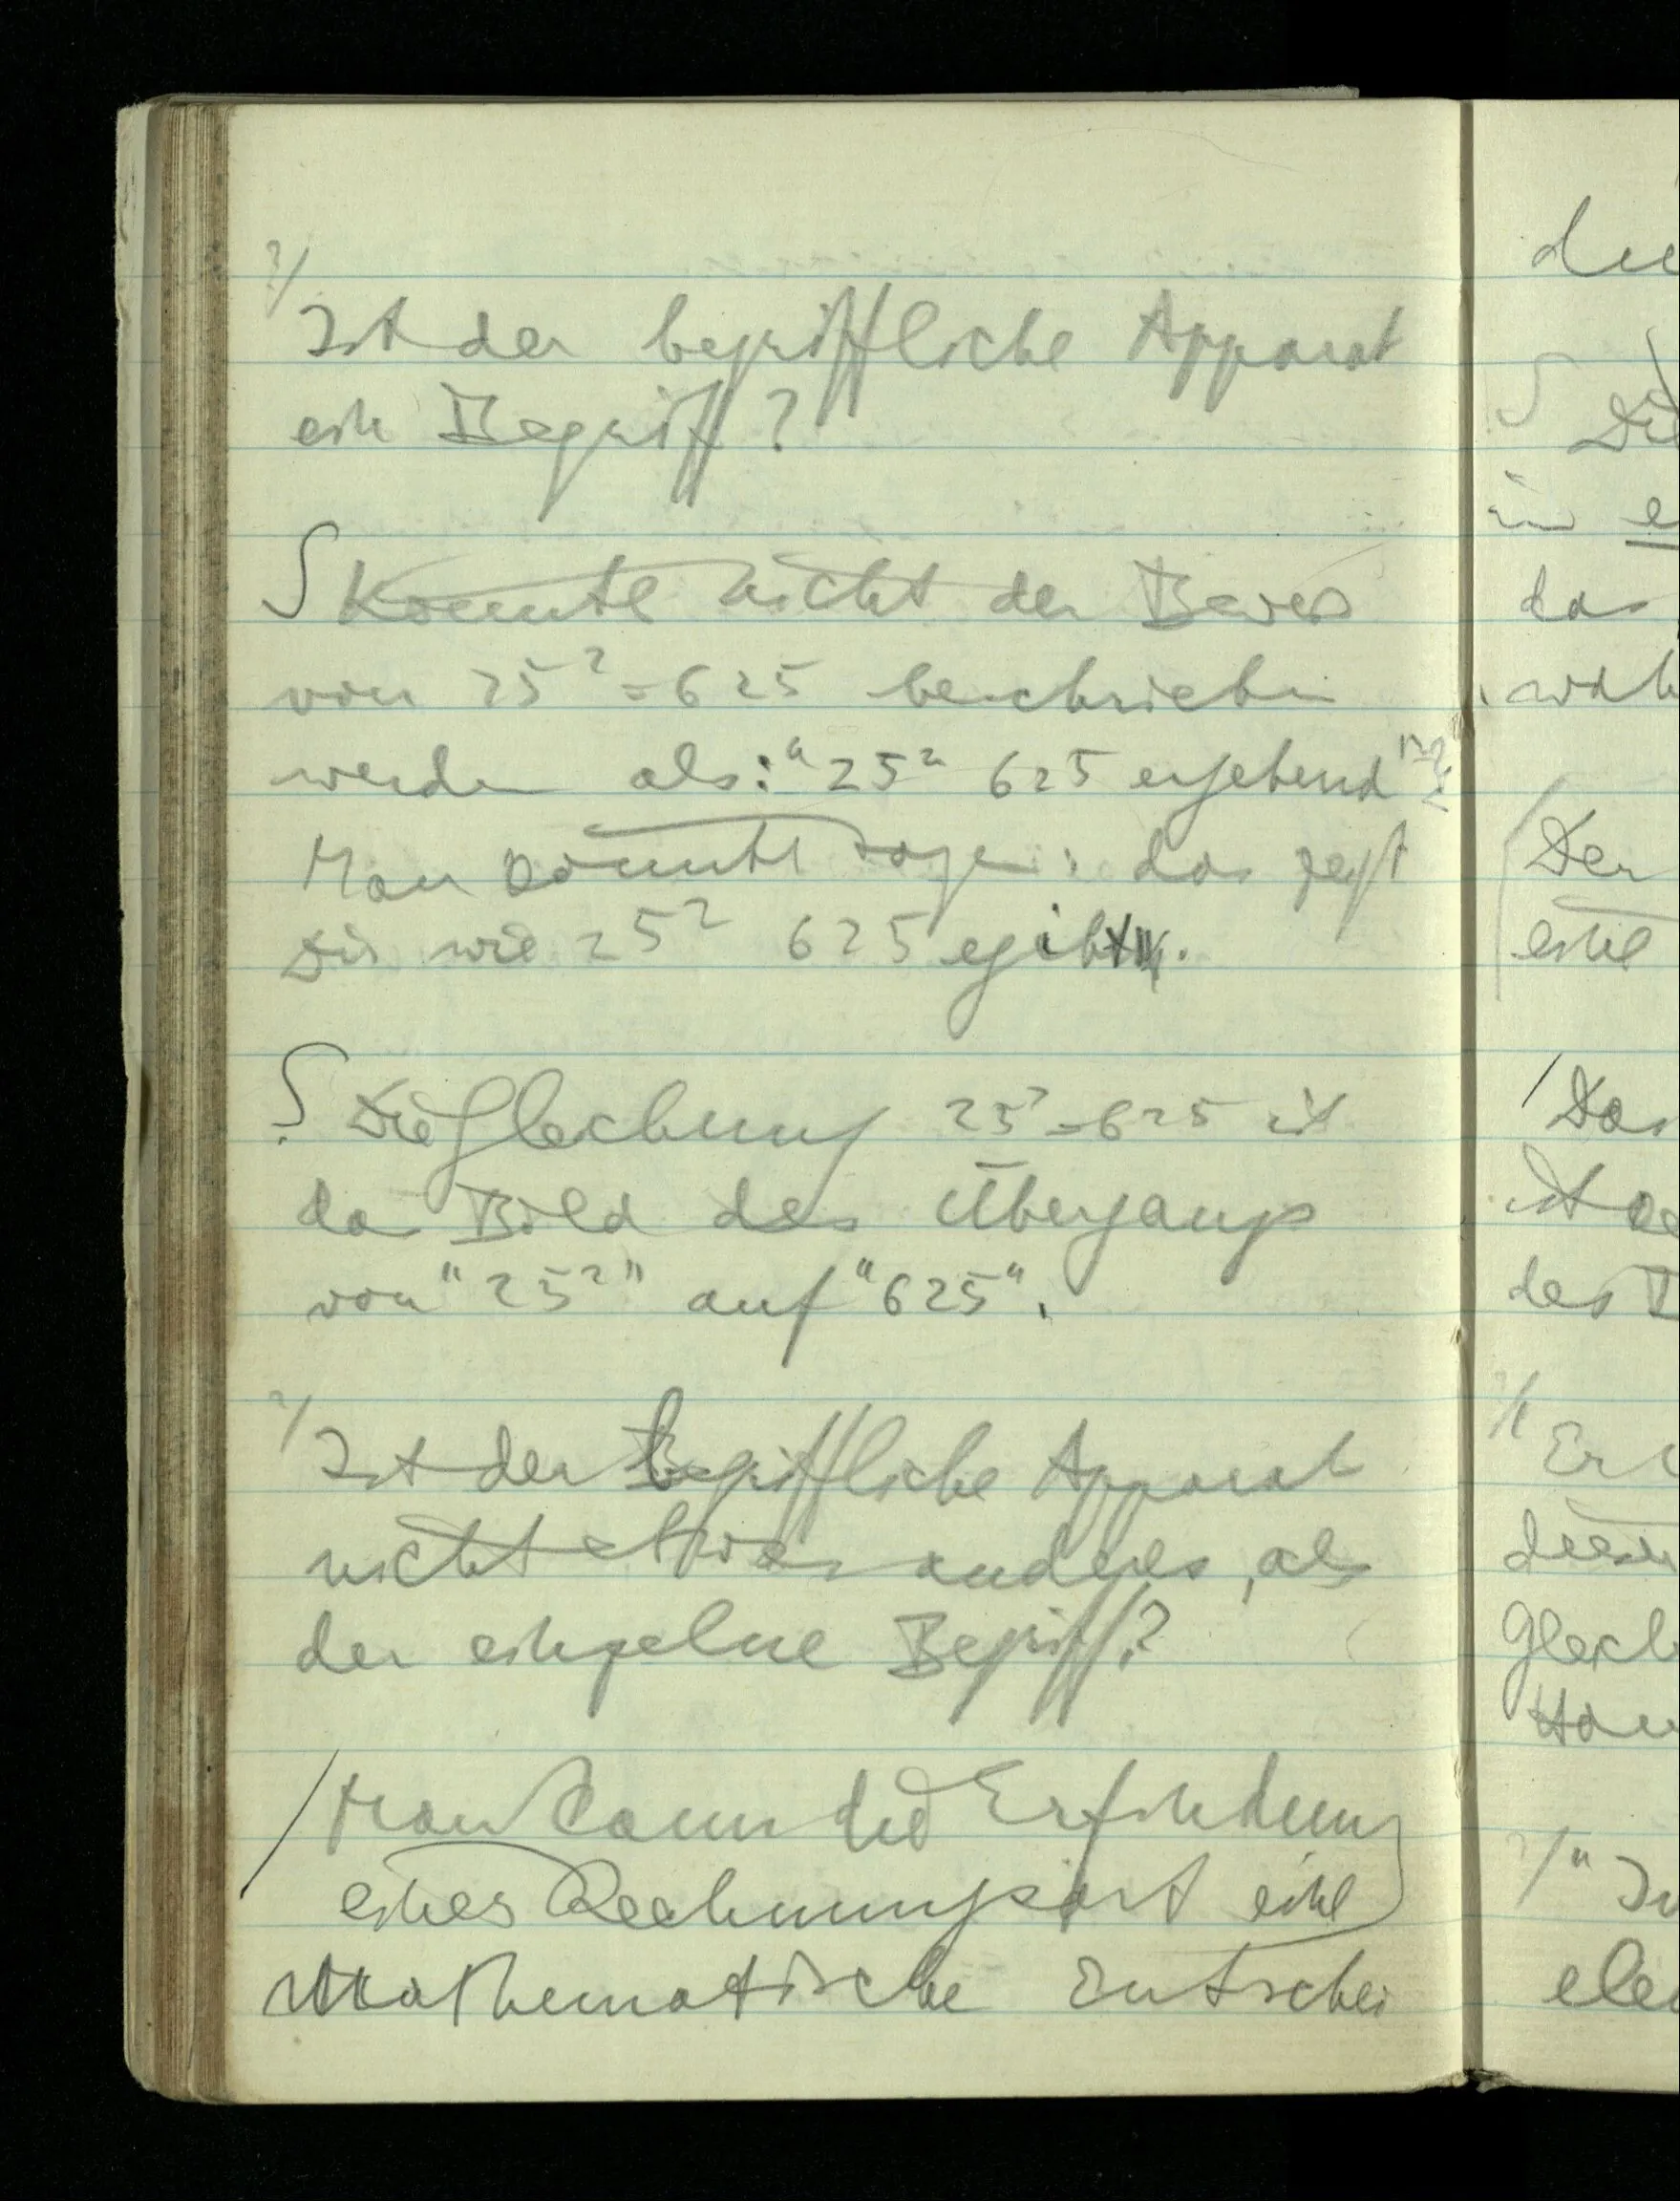 ?/
Ist der begriffliche Apparat
ein Begriff?
∫ Könnte nicht der Beweis
von 25² = 625 beschrieben
werden als: "25² 625 ergebend"?
Man könnte sagen: das zeigt
Dir wie 25² 625 ergibt.
∫ Die Gleichung 25² = 625 ist
das Bild des Übergangs
von "25²" auf "625".
?/
Ist der begriffliche Apparat
nicht etwas anderes, als
der einzelne Begriff?
/ Man kann die Erfindung
einer Rechnungsart eine
Mathematische Entschei
du
∫ Die
in
das
Der
eine
/ Das
ist
des
?/ Er
dieser
Gleich
?/ "In